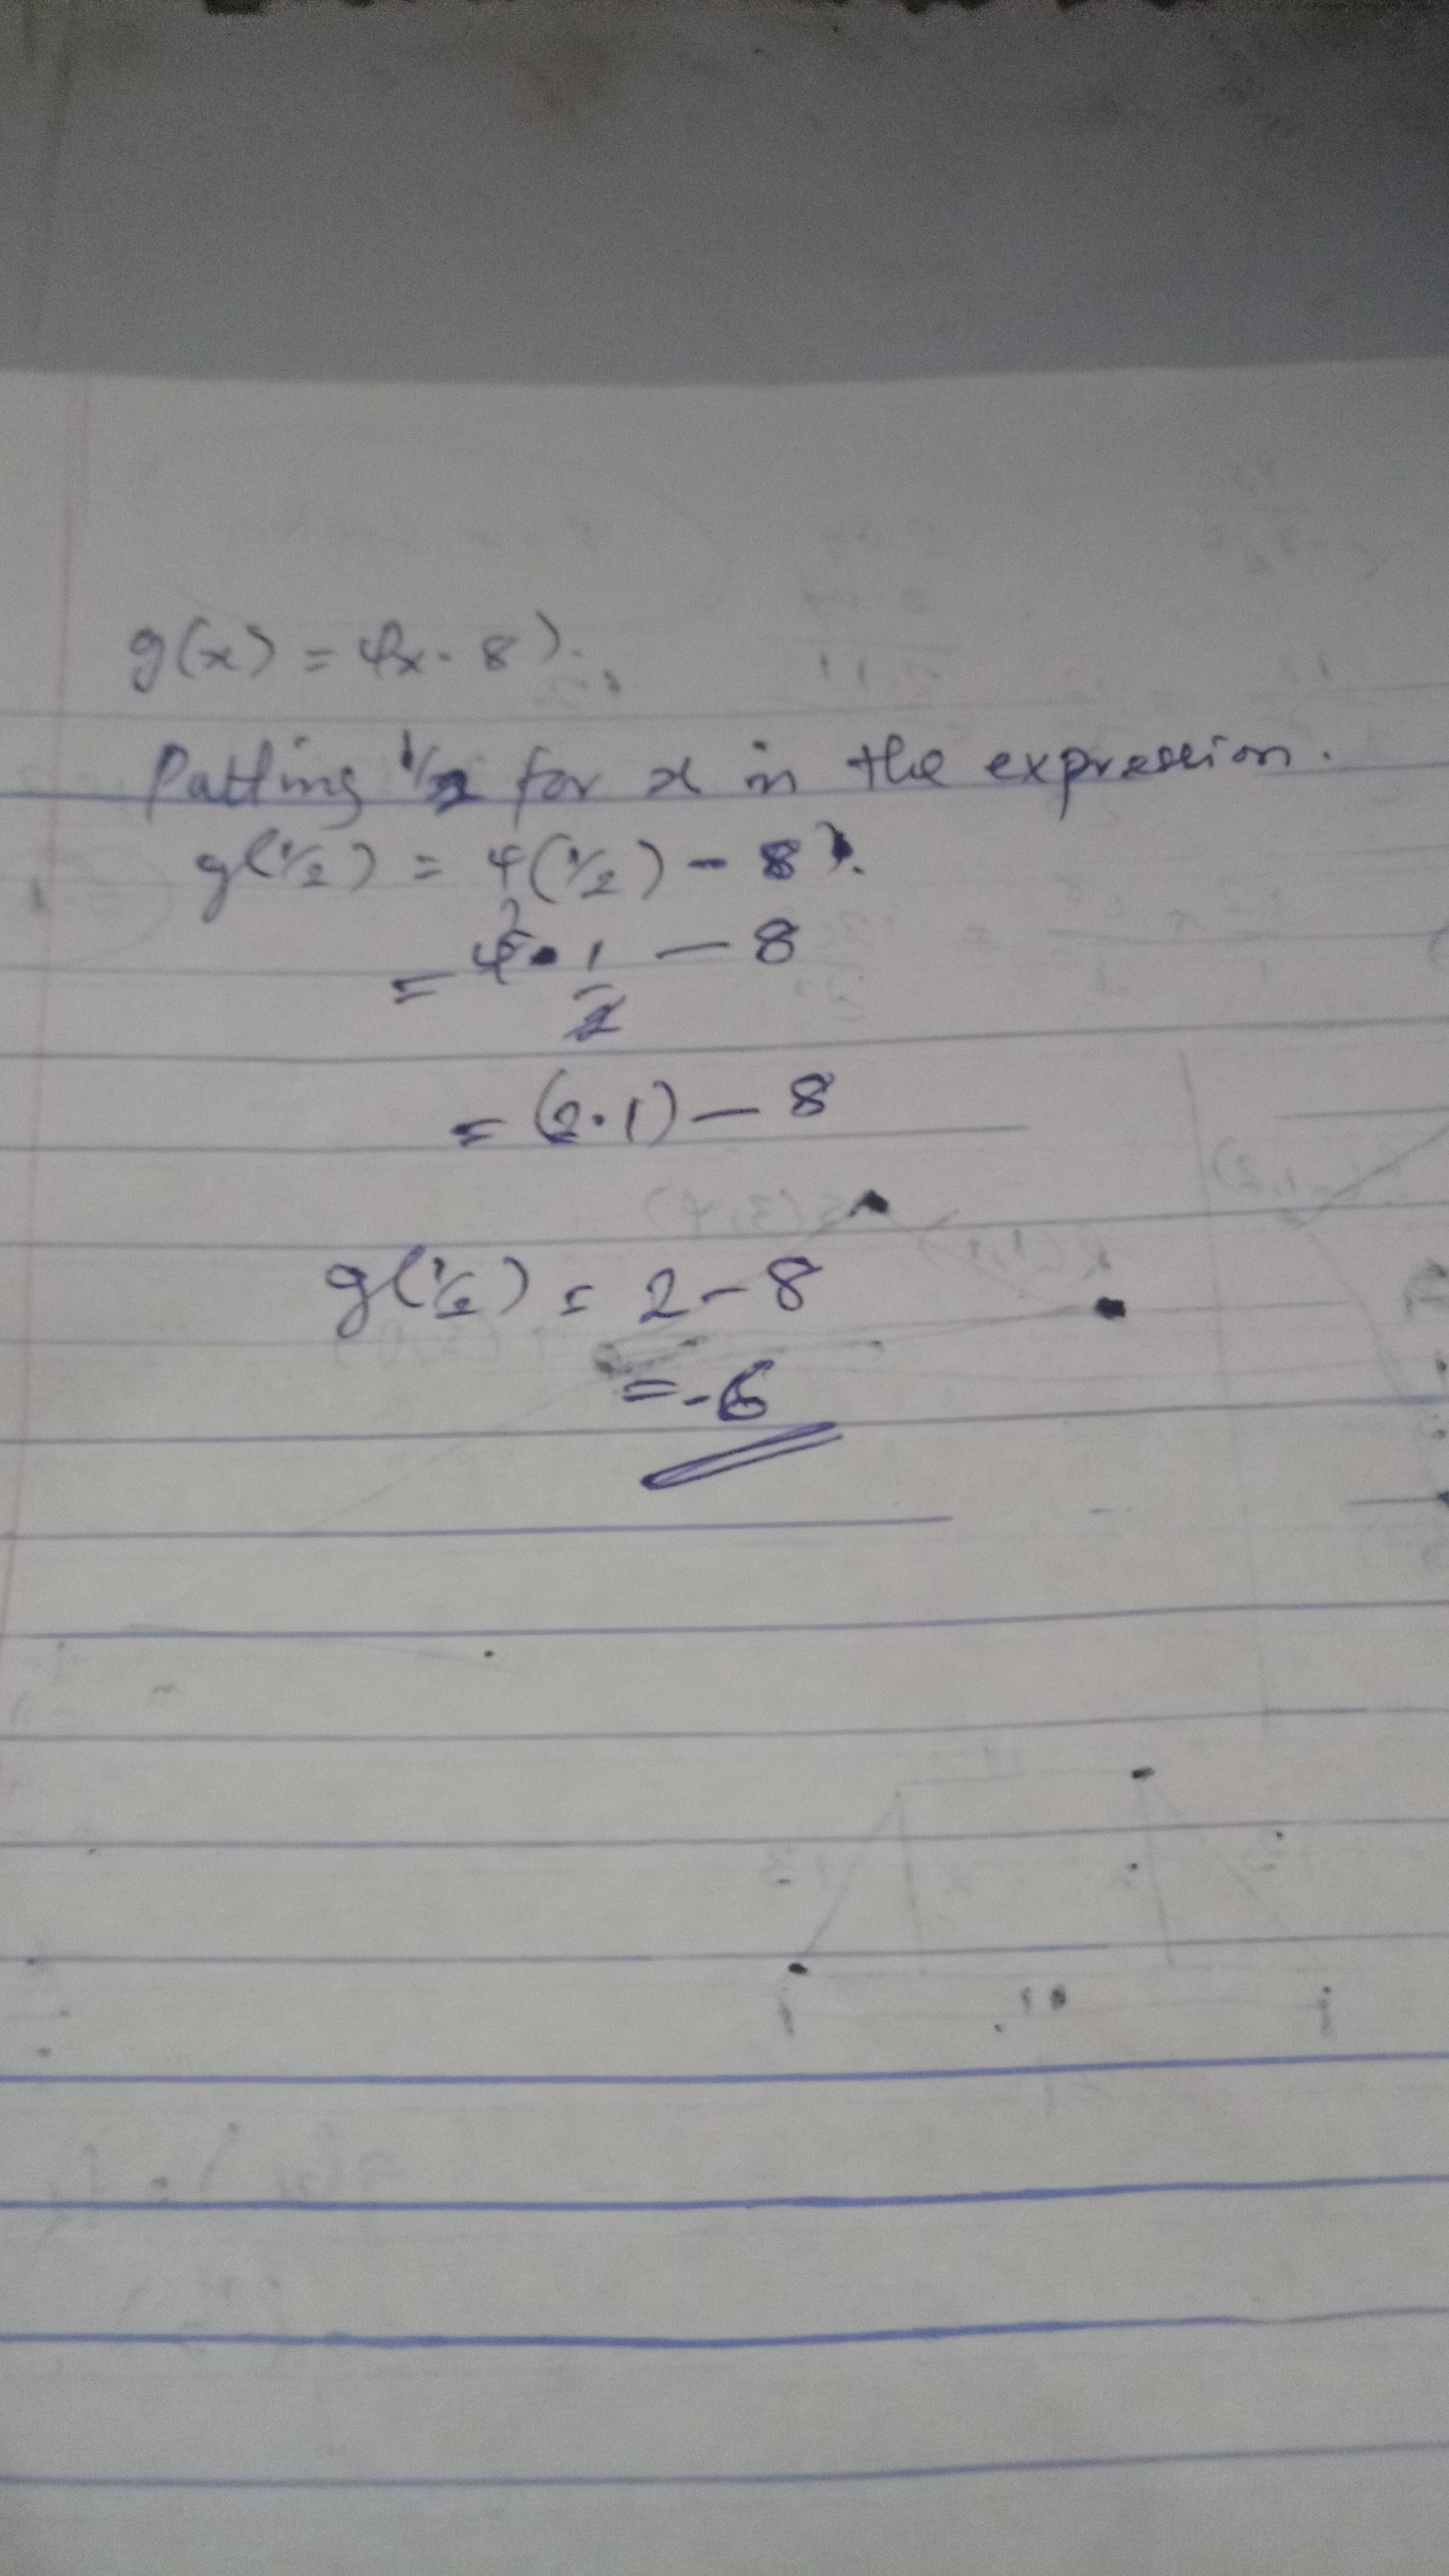 g(x) = 4x - 8).
Putting 1/2 for x in the expression.
g(1/2) = 4(1/2) - 8).
= 4 2 · 1/2 - 8
= (2·1) - 8
g(1/2) = 2 - 8
= -6